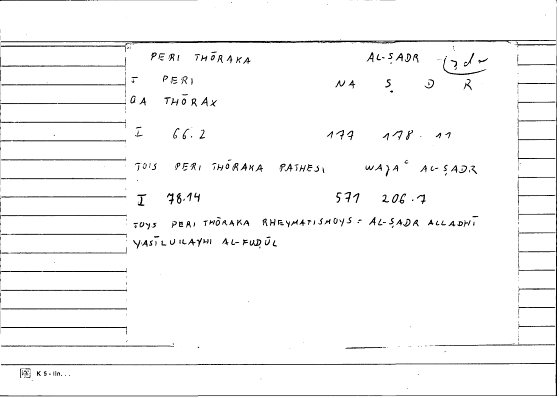 PERI THŌRAKA AL-ṢADR
T PERI NA Ṣ D R
QA THŌRAX
I 66.2 177 178.11
TOIS PERI THŌRAKA PATHESI WAJAʿ AL-ṢADR
I 78.14 571 206.7
TOYS PERI THŌRAKA RHEYMATISMOYS = AL-ṢADR ALLADHĪ
YASĪLU ILAYHI AL-FUḌŪL
K 5 - lin...